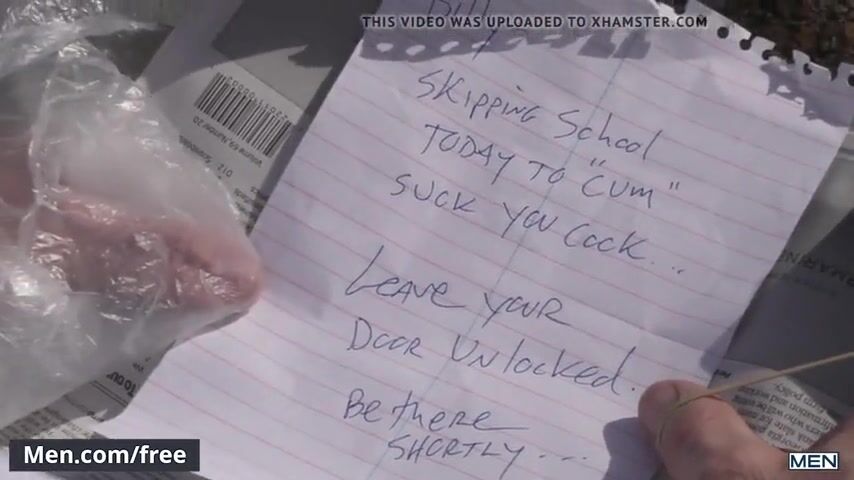 THIS VIDEO WAS UPLOADED TO XHAMSTER.COM
Billy
Skipping School
TODAY TO "CUM"
SUCK YOU COCK...
LEAVE YOUR
DOOR UNLOCKED.
Be there
SHORTLY....
Volume 69, Number 20
Men.com/free
MEN